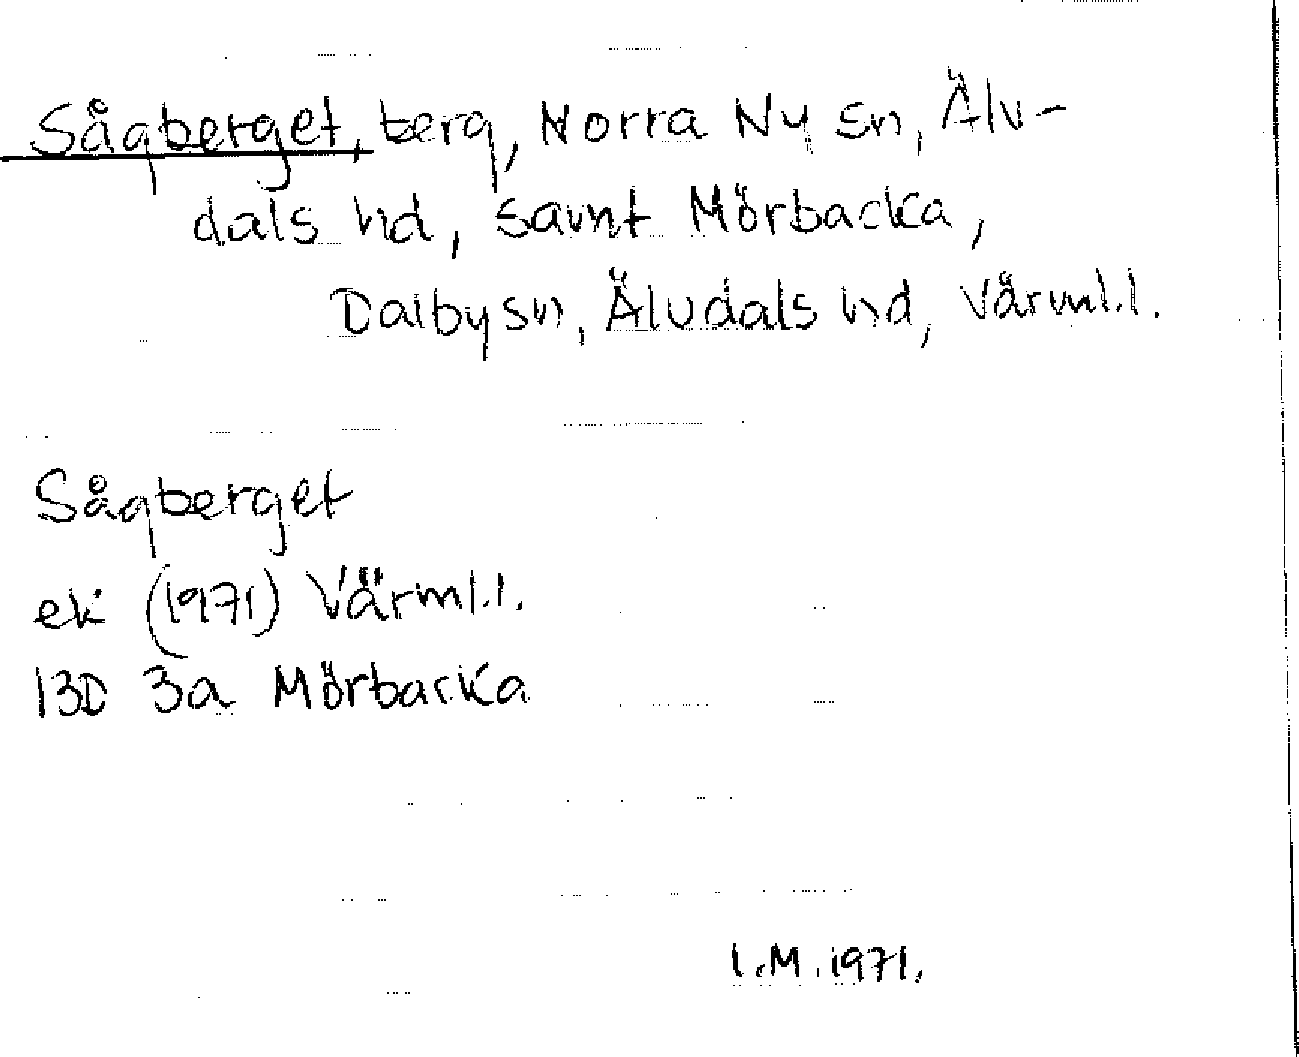 Sågberget, berg, Norra Ny sn, Älv-
dals hd, samt Mörbacka,
Dalby sn, Älvdals hd, Värml.l.
Sågberget
ek (1971) Värml.l.
13D 3a Mörbacka
I.M. 1971.